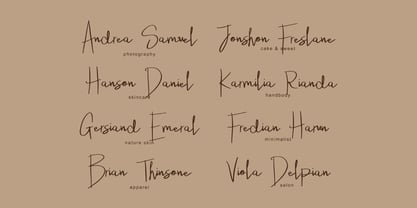 Andrea Samuel
photography
Jonshon Freslane
cake & sweet
Hanson Daniel
skincare
Karmilia Rianda
handbody
Gersiand Emeral
nature skin
Fredian Harun
minimalist
Brian Thinsone
apparel
Viola Delpian
salon